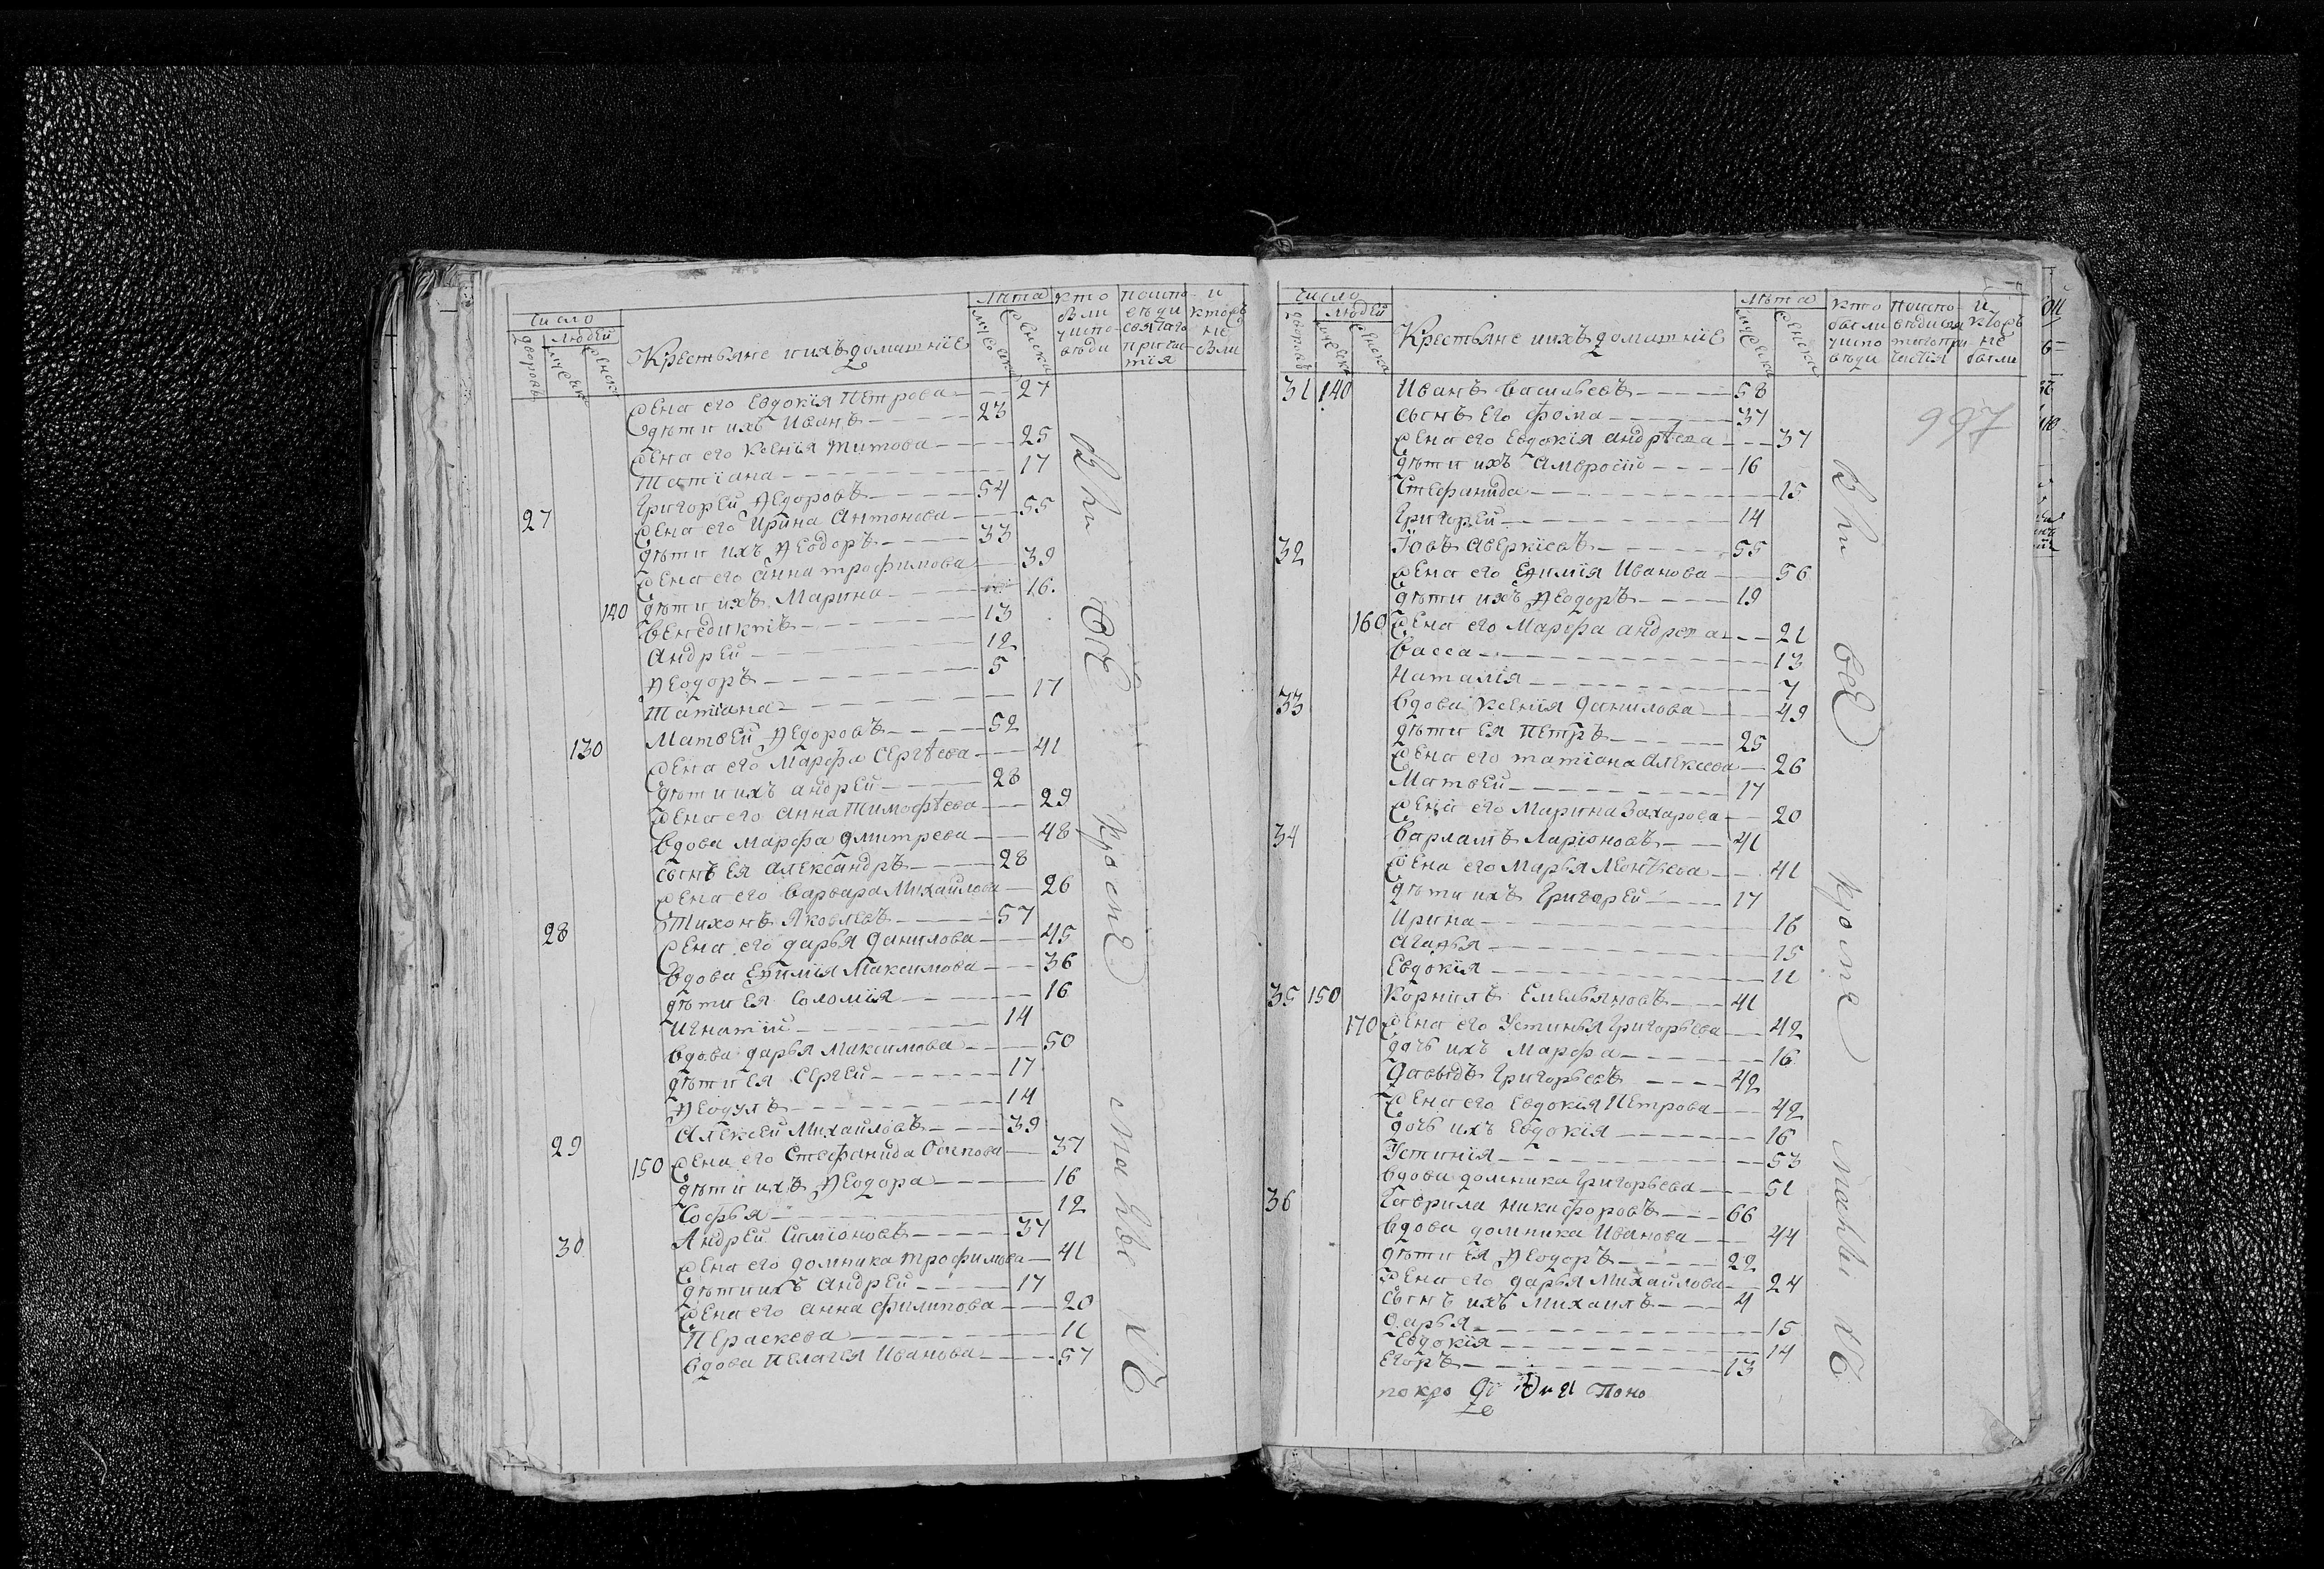 Число
Людей
дворовъ
Крестьяне и ихъ домашнїе
Лѣта
кто были у исповѣди
и кторъ не были
жена его Евдокїя Петрова 27
дѣти ихъ Иванъ 23
жена его Ксенїя Титова 25
Татїана 17
27 Григорей Ѳедоровъ 54
жена его Ирина Антонова 55
дѣти ихъ Ѳеодоръ 33
жена его Анна трофимова 39
140 дѣти ихъ Марина 16
Венедиктъ 13
Андрей 12
Ѳеодоръ 5
Татїана 17
130 Матвей Ѳедоровъ 52
жена его Марфа Сергѣева 41
дѣти ихъ андрей 28
жена его Анна Тимофѣева 29
вдова Марфа дмитрева 48
сынъ ея Александръ 28
жена его Варвара Михайлова 26
28 Тихонъ Яковлевъ 57
жена его дарья данилова 45
вдова Максимова 36
дѣти ея Соломїя 16
Игнатїй 14
вдова дарья Максимова 50
дѣти ея Сергей 17
Ѳеодулъ 14
29 Алексей Михайловъ 39
150 жена его Стефанида Осипова 37
дѣти ихъ Ѳеодора 16
Софья 12
30 Андрей Симїоновъ 37
жена его домника трофимова 41
дѣти ихъ Андрей 17
жена его анна филипова 20
Пераскева 11
вдова Пелагея Иванова 57
Число
Людей
дворовъ
Крестьяне и ихъ домашнїе
Лѣта
кто были у исповѣди
не были
997
31 140 Иванъ Васильевъ 58
сынъ его фома 37
жена его Евдокїя андрѣева 37
дѣти ихъ Амвросїй 16
Стефанида 15
Григорей 14
32 Їовъ Аверкїевъ 55
жена его Иванова 56
дѣти ихъ Ѳеодоръ 19
160 жена его Марфа 21
Васса 13
Наталїя 7
33 вдова Ксенїя данилова 49
дѣти ея Петръ 25
жена его татїана Алексеева 26
Матвей 17
жена его Марина Захарова 20
34 Варламъ Ларїоновъ 41
жена его Марья Леонтьева 41
дѣти ихъ Григорей 17
Ирина 16
Агаѳья 15
Евдокїя 11
35 150 Корнилъ Емельяновъ 41
170 жена его Устинья Григорьева 42
дочь ихъ Марфа 16
Давыдъ Григорьевъ 42
жена его Евдокїя Петрова 42
дочь ихъ Евдокїя 16
Устинїя 53
вдова домника Григорьева 51
36 Гаврила Никифоровъ 66
вдова домника Иванова 44
дѣти ея Ѳеодоръ 22
жена его дарья Михайлова 24
сынъ ихъ Михаилъ 4
Дарья 15
Евдокїя 14
Егоръ 13